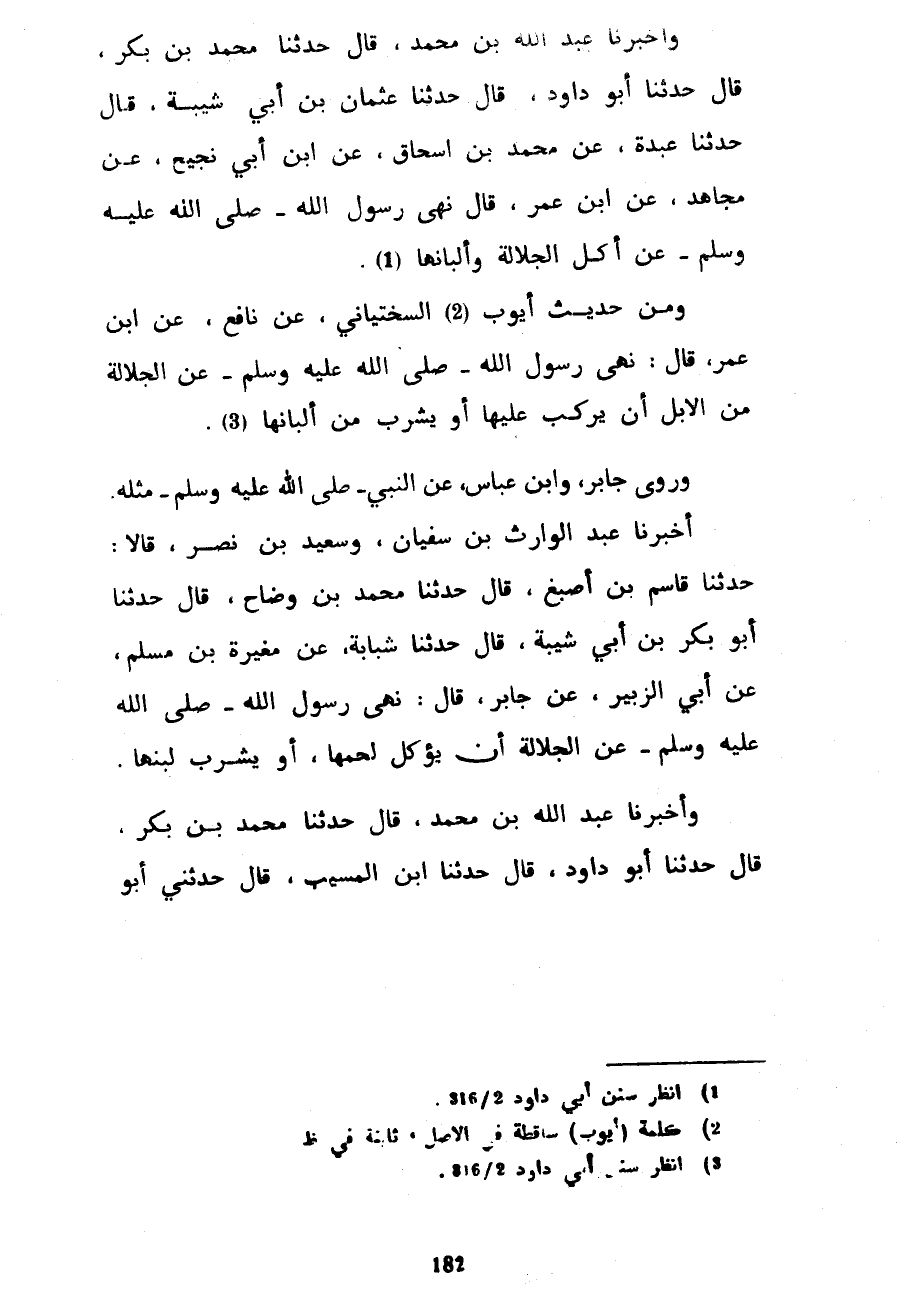 وأخبرنا عبد الله بن محمد ، قال حدثنا محمد بن بكر ،
قال حدثنا أبو داود ، قال حدثنا عثمان بن أبي شيبة ، قال
حدثنا عبدة ، عن محمد بن اسحاق ، عن ابن أبي نجيح ، عن
مجاهد ، عن ابن عمر ، قال نهى رسول الله ـ صلى الله عليه
وسلم ـ عن أكل الجلالة وألبانها (1) .
ومن حديث أيوب (2) السختياني ، عن نافع ، عن ابن
عمر، قال : نهى رسول الله ـ صلى الله عليه وسلم ـ عن الجلالة
من الابل أن يركب عليها أو يشرب من ألبانها (3) .
وروى جابر، وابن عباس، عن النبي ـ صلى الله عليه وسلم ـ مثله.
أخبرنا عبد الوارث بن سفيان ، وسعيد بن نصر ، قالا :
حدثنا قاسم بن أصبغ ، قال حدثنا محمد بن وضاح ، قال حدثنا
أبو بكر بن أبي شيبة ، قال حدثنا شبابة، عن مغيرة بن مسلم ،
عن أبي الزبير ، عن جابر ، قال : نهى رسول الله ـ صلى الله
عليه وسلم ـ عن الجلالة أن يؤكل لحمها ، أو يشرب لبنها .
وأخبرنا عبد الله بن محمد ، قال حدثنا محمد بن بكر ،
قال حدثنا أبو داود ، قال حدثنا ابن المسيب ، قال حدثني أبو
1) انظر سنن أبي داود 316/2 .
2) كلمة (أيوب) ساقطة في الاصل ، ثابتة في ظ
3) انظر سنن أبي داود 316/2 .
182